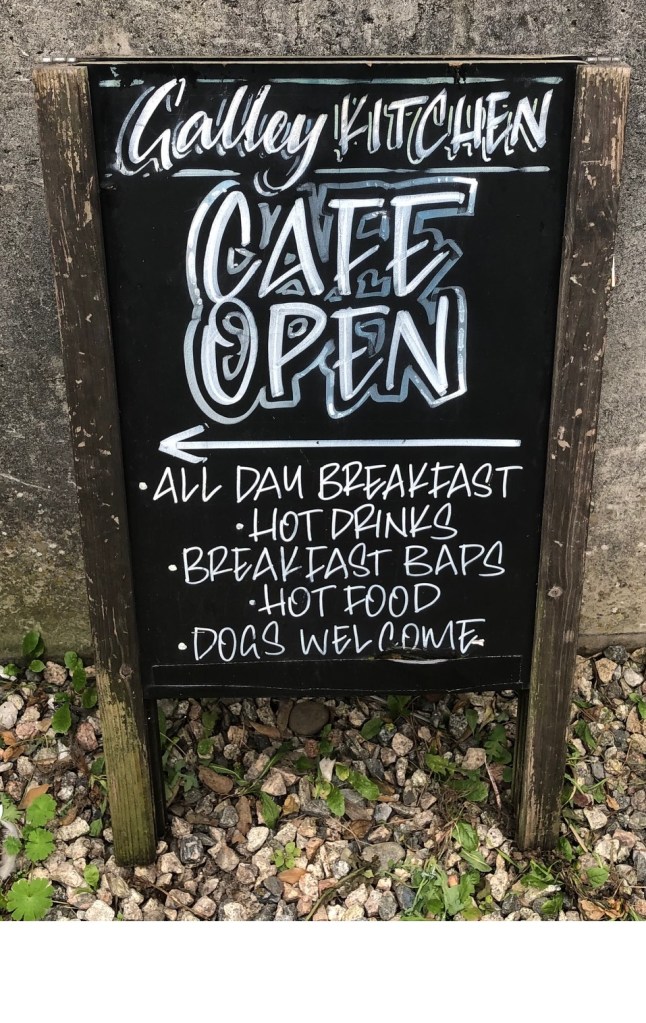 Galley KITCHEN
CAFE
OPEN
•ALL DAY BREAKFAST
•HOT DRINKS
•BREAKFAST BAPS
•HOT FOOD
•DOGS WELCOME